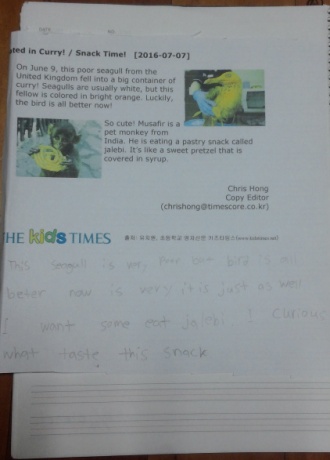 ted in Curry! / Snack Time! [2016-07-07]
On June 9, this poor seagull from the
United Kingdom fell into a big container of
curry! Seagulls are usually white, but this
fellow is colored in bright orange. Luckily,
the bird is all better now!
So cute! Musafir is a
pet monkey from
India. He is eating a pastry snack called
jalebi. It's like a sweet pretzel that is
covered in syrup.
Chris Hong
Copy Editor
(chrishong@timescore.co.kr)
THE kids TIMES
This seagull is very poor but bird is all
beter now is very it is just as well
I want some eat jalebi I curious
what taste this snack